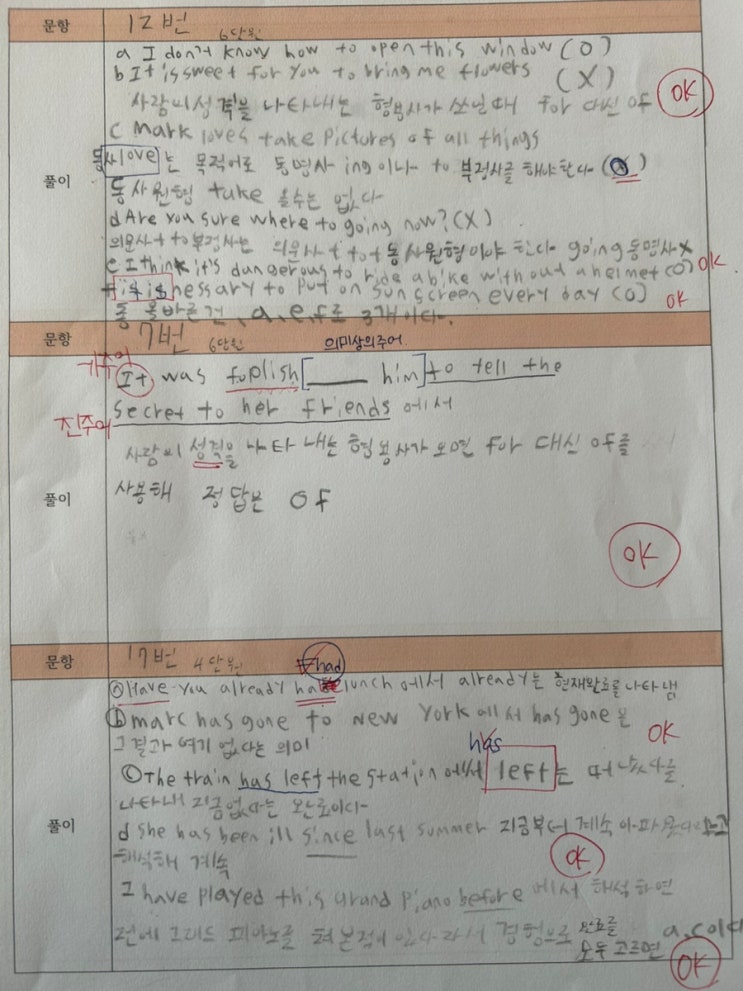 문항 12번 6단원
풀이
a I don't know how to open this window (O)
b It is sweet for you to bring me flowers (X)
사람의 성격을 나타내는 형용사가 쓰일때 for 대신 of OK
c Mark loves take pictures of all things
동사 love는 목적어로 동명사 ing이나 to 부정사를 해야한다 (X)
동사원형 take 올수는 없다
d Are you sure where to going now? (X)
의문사 + to부정사는 의문사 + to + 동사원형이야 한다 going 동명사 X
e I think it's dangerous to ride a bike without a helmet (O) OK
f it is nessary to put on sunscreen every day (O) OK
총 올바른건 a, e, f로 3개이다.
문항 7번 6단원 의미상의주어
가주어
It was foolish [ ____ him] to tell the
진주어
secret to her friends 에서
사람의 성격을 나타내는 형용사가 오면 for 대신 of를
풀이
사용해 정답은 of
OK
문항 17번 4단원 had
풀이
ⓐ Have you already lunch 에서 already는 현재완료를 나타냄
ⓑ marc has gone to New York 에서 has gone은
그결과 여기 없다는 의미 OK
has
ⓒ The train has left the station 에서 left는 떠났다를
나타내 지금없다는 완료이다
d she has been ill since last summer 지금부터 계속 아파왔다라고
해석해 계속 OK
I have played this grand piano before 에서 해석하면
전에 그랜드 피아노를 쳐본적이 있다라서 경험으로 완료를
모두 고르면 a, c이다
OK